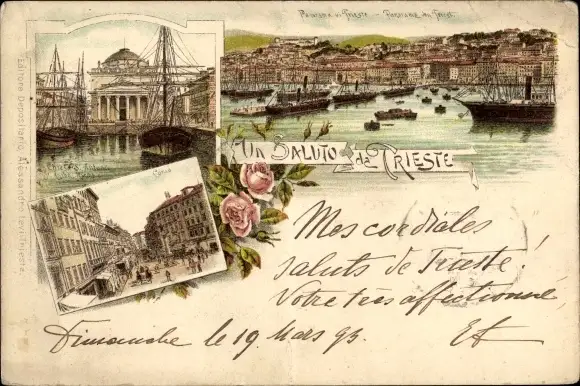 Panorama di Trieste - Panorama von Triest.
UN SALUTO da TRIESTE
S. Antonio
Corso
Editore Depositario, Alessandro Levi-Trieste.
Mes cordiales
saluts de Trieste
Votre très affectionné,
Dimanche le 19 Mars 93.